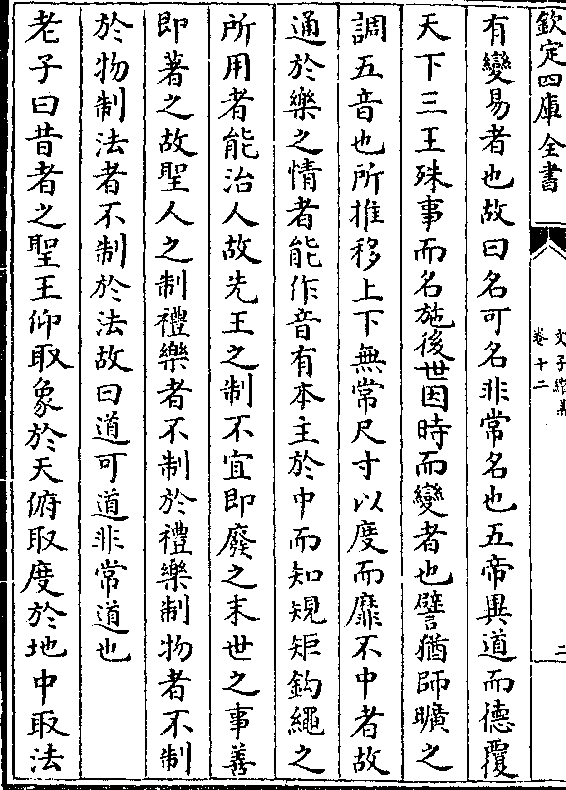 欽定四庫全書
文子纘義
卷十二
二
有變易者也故曰名可名非常名也五帝異道而德覆
天下三王殊事而名施後世因時而變者也譬猶師曠之
調五音也所推移上下無常尺寸以度而靡不中者故
通於樂之情者能作音有本主於中而知䂓矩鈎繩之
所用者能治人故先王之制不宜即廢之末世之事善
即著之故聖人之制禮樂者不制於禮樂制物者不制
於物制法者不制於法故曰道可道非常道也
老子曰昔者之聖王仰取象於天俯取度於地中取法